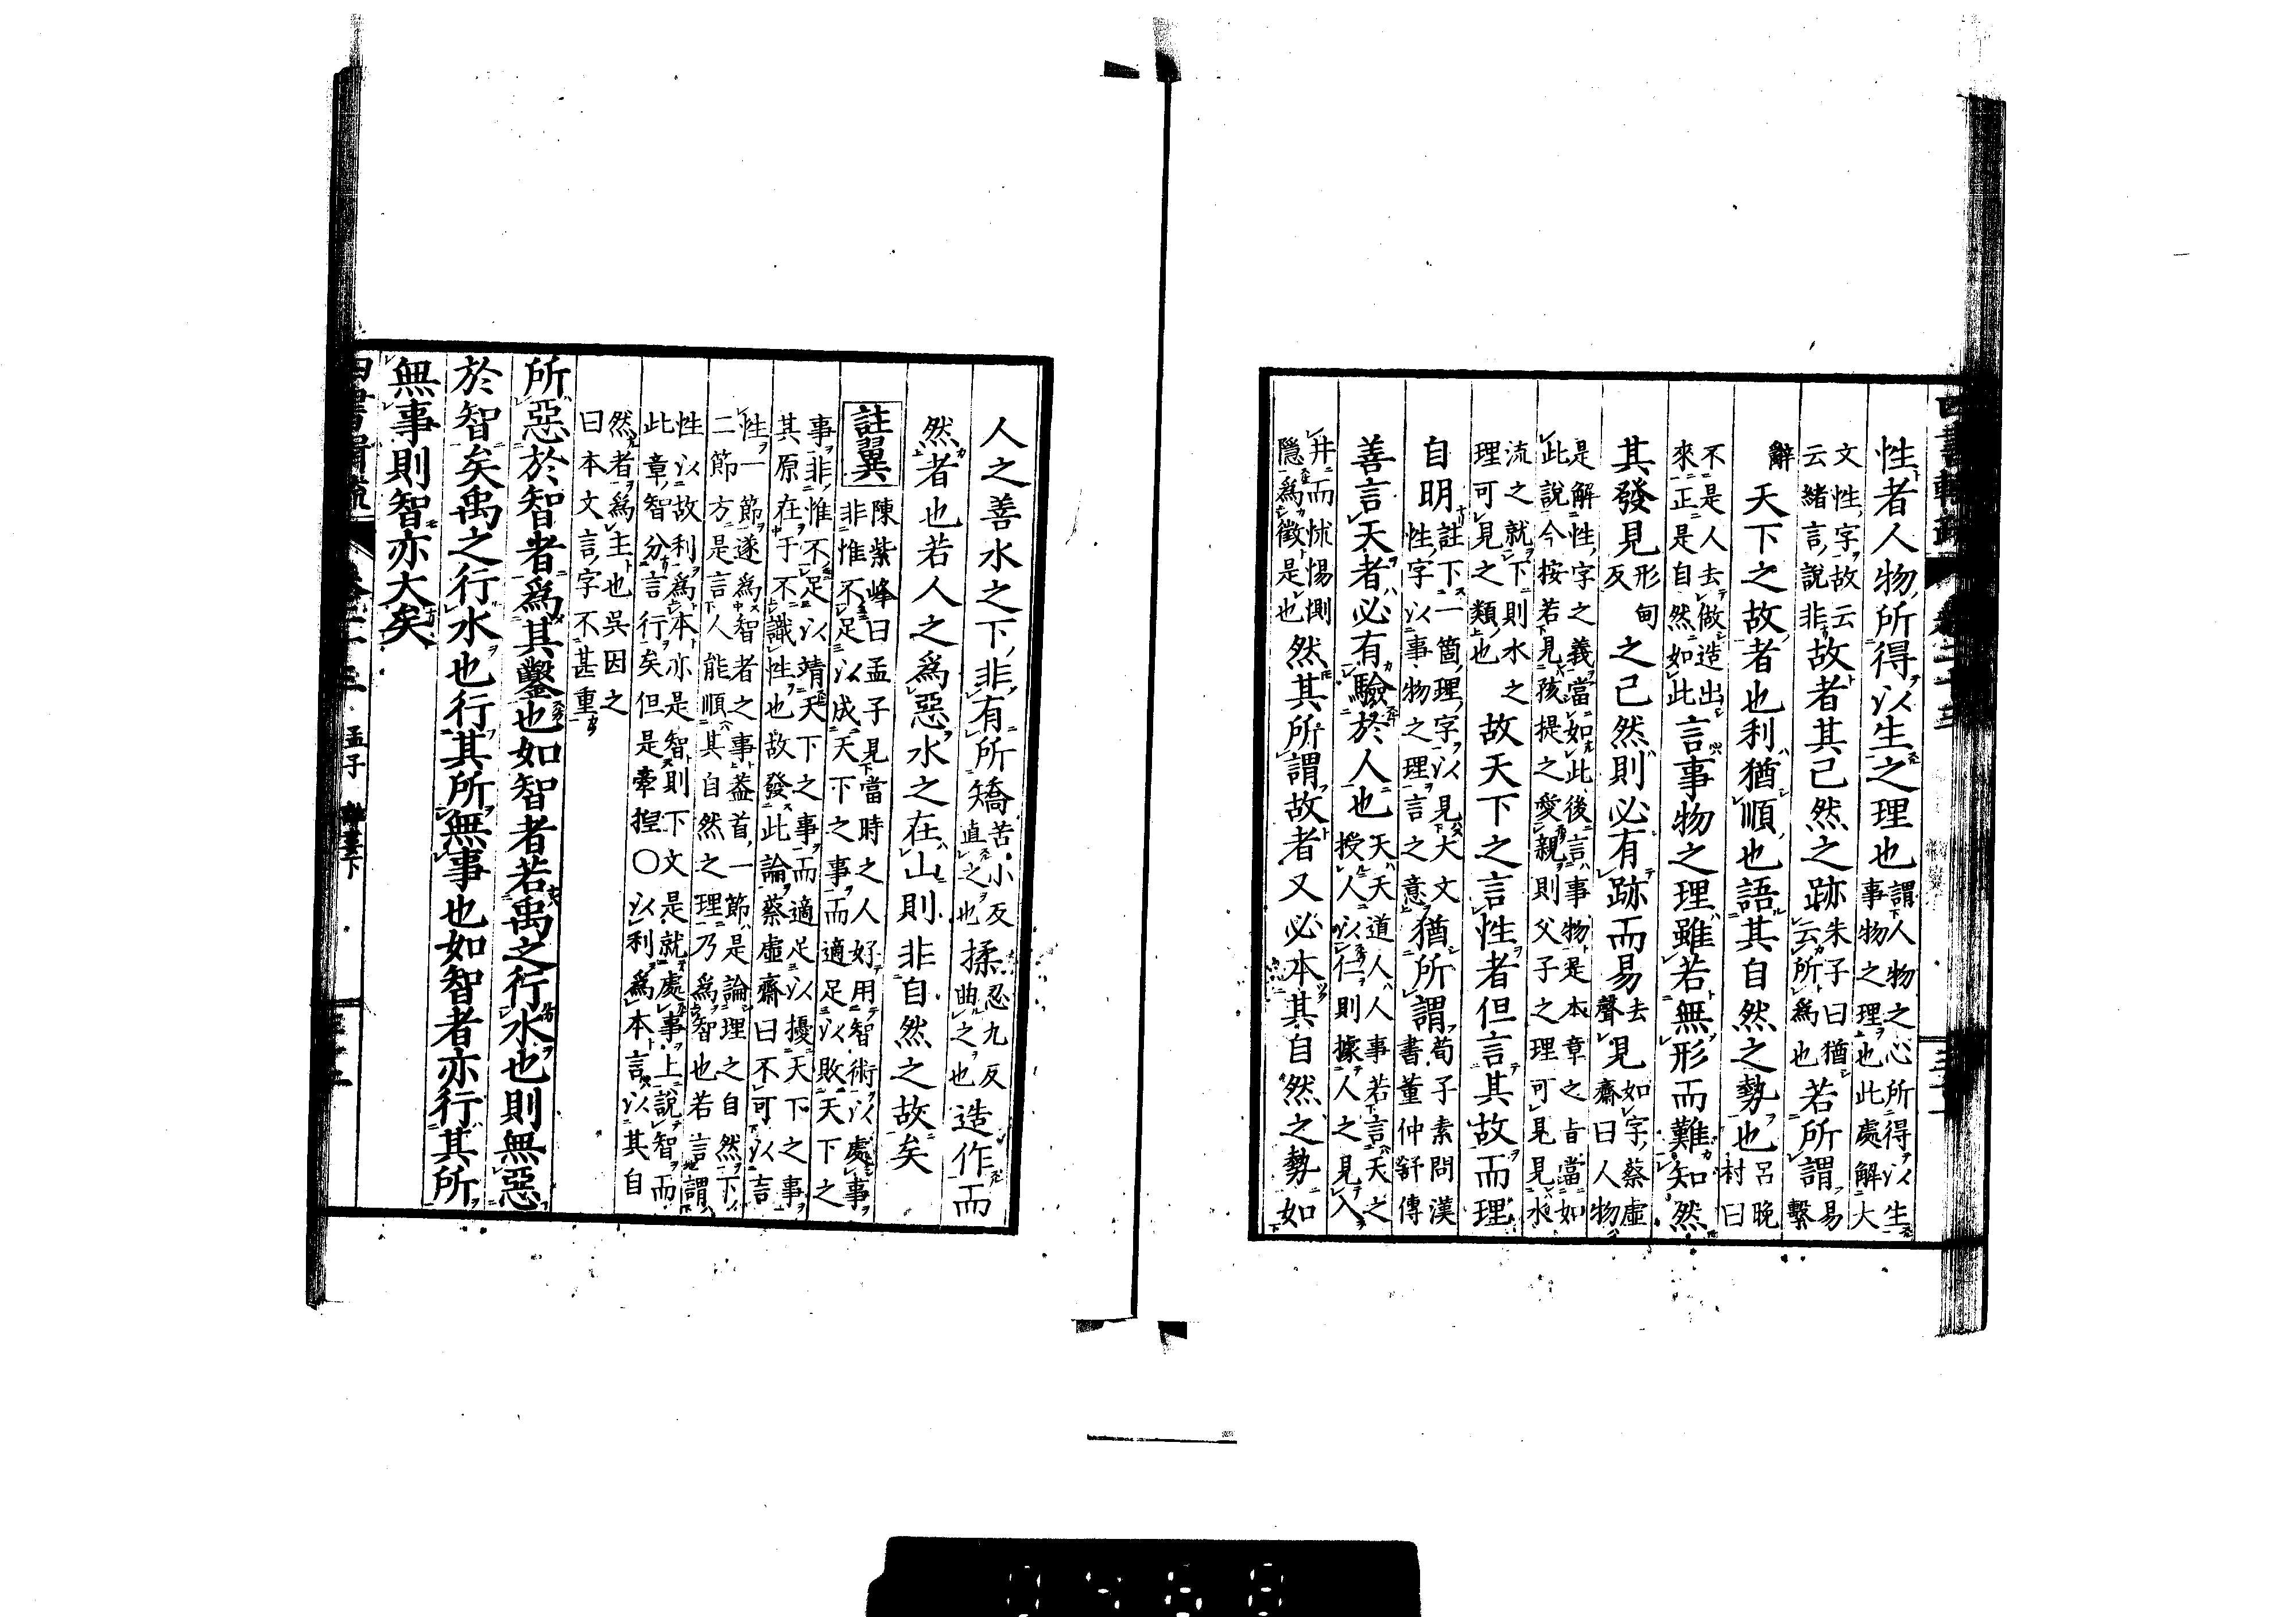 性者人物所得以生之理也謂人物之心所得以生事物之理也此處解大
文性字故云云緒言說非故者其已然之跡朱子曰猶云所爲也若所謂易繫
辭天下之故者也利猶順也語其自然之勢也呂晚村曰
不是人去做造出來正是自然如此言事物之理雖若無形而難知然
其發見形甸反之已然則必有跡而易去聲見如字蔡虛齋曰人物
是解性字之義當如此後言事物是本章之旨當如此說今按若見孩提之愛親則父子之理可見見水
流之就下則水之理可見之類也故天下之言性者但言其故而理
自明註下一箇理字以見大文性字以事物之理言之意猶所謂荀子素問漢書董仲舒傳
善言天者必有驗於人也天天道人人事若言天之授人以仁則據人之見入
井而怵惕惻隱爲徵是也然其所謂故者又必本其自然之勢如
人之善水之下非有所矯苦小反直之也揉忍九反曲之也造作而
然者也若人之爲惡水之在山則非自然之故矣
註翼陳紫峰曰孟子見當時之人好用智術以處事非惟不足以成天下之事而適足以敗天下之
事非惟不足以靖天下之事而適足以擾天下之事其原在于不識性也故發此論蔡虛齋曰不可以言
性一節遂爲智者之事蓋首一節是論理之自然下二節方是言人能順其自然之理乃爲智也若言謂
性以故利爲本亦是智則下文是就處事上說智而此章智分言行矣但是牽揑○以利爲本言以其自
然者爲主也吳因之曰本文言字不甚重
所惡於智者爲其鑿也如智者若禹之行水也則無惡
於智矣禹之行水也行其所無事也如智者亦行其所
無事則智亦大矣
孟子